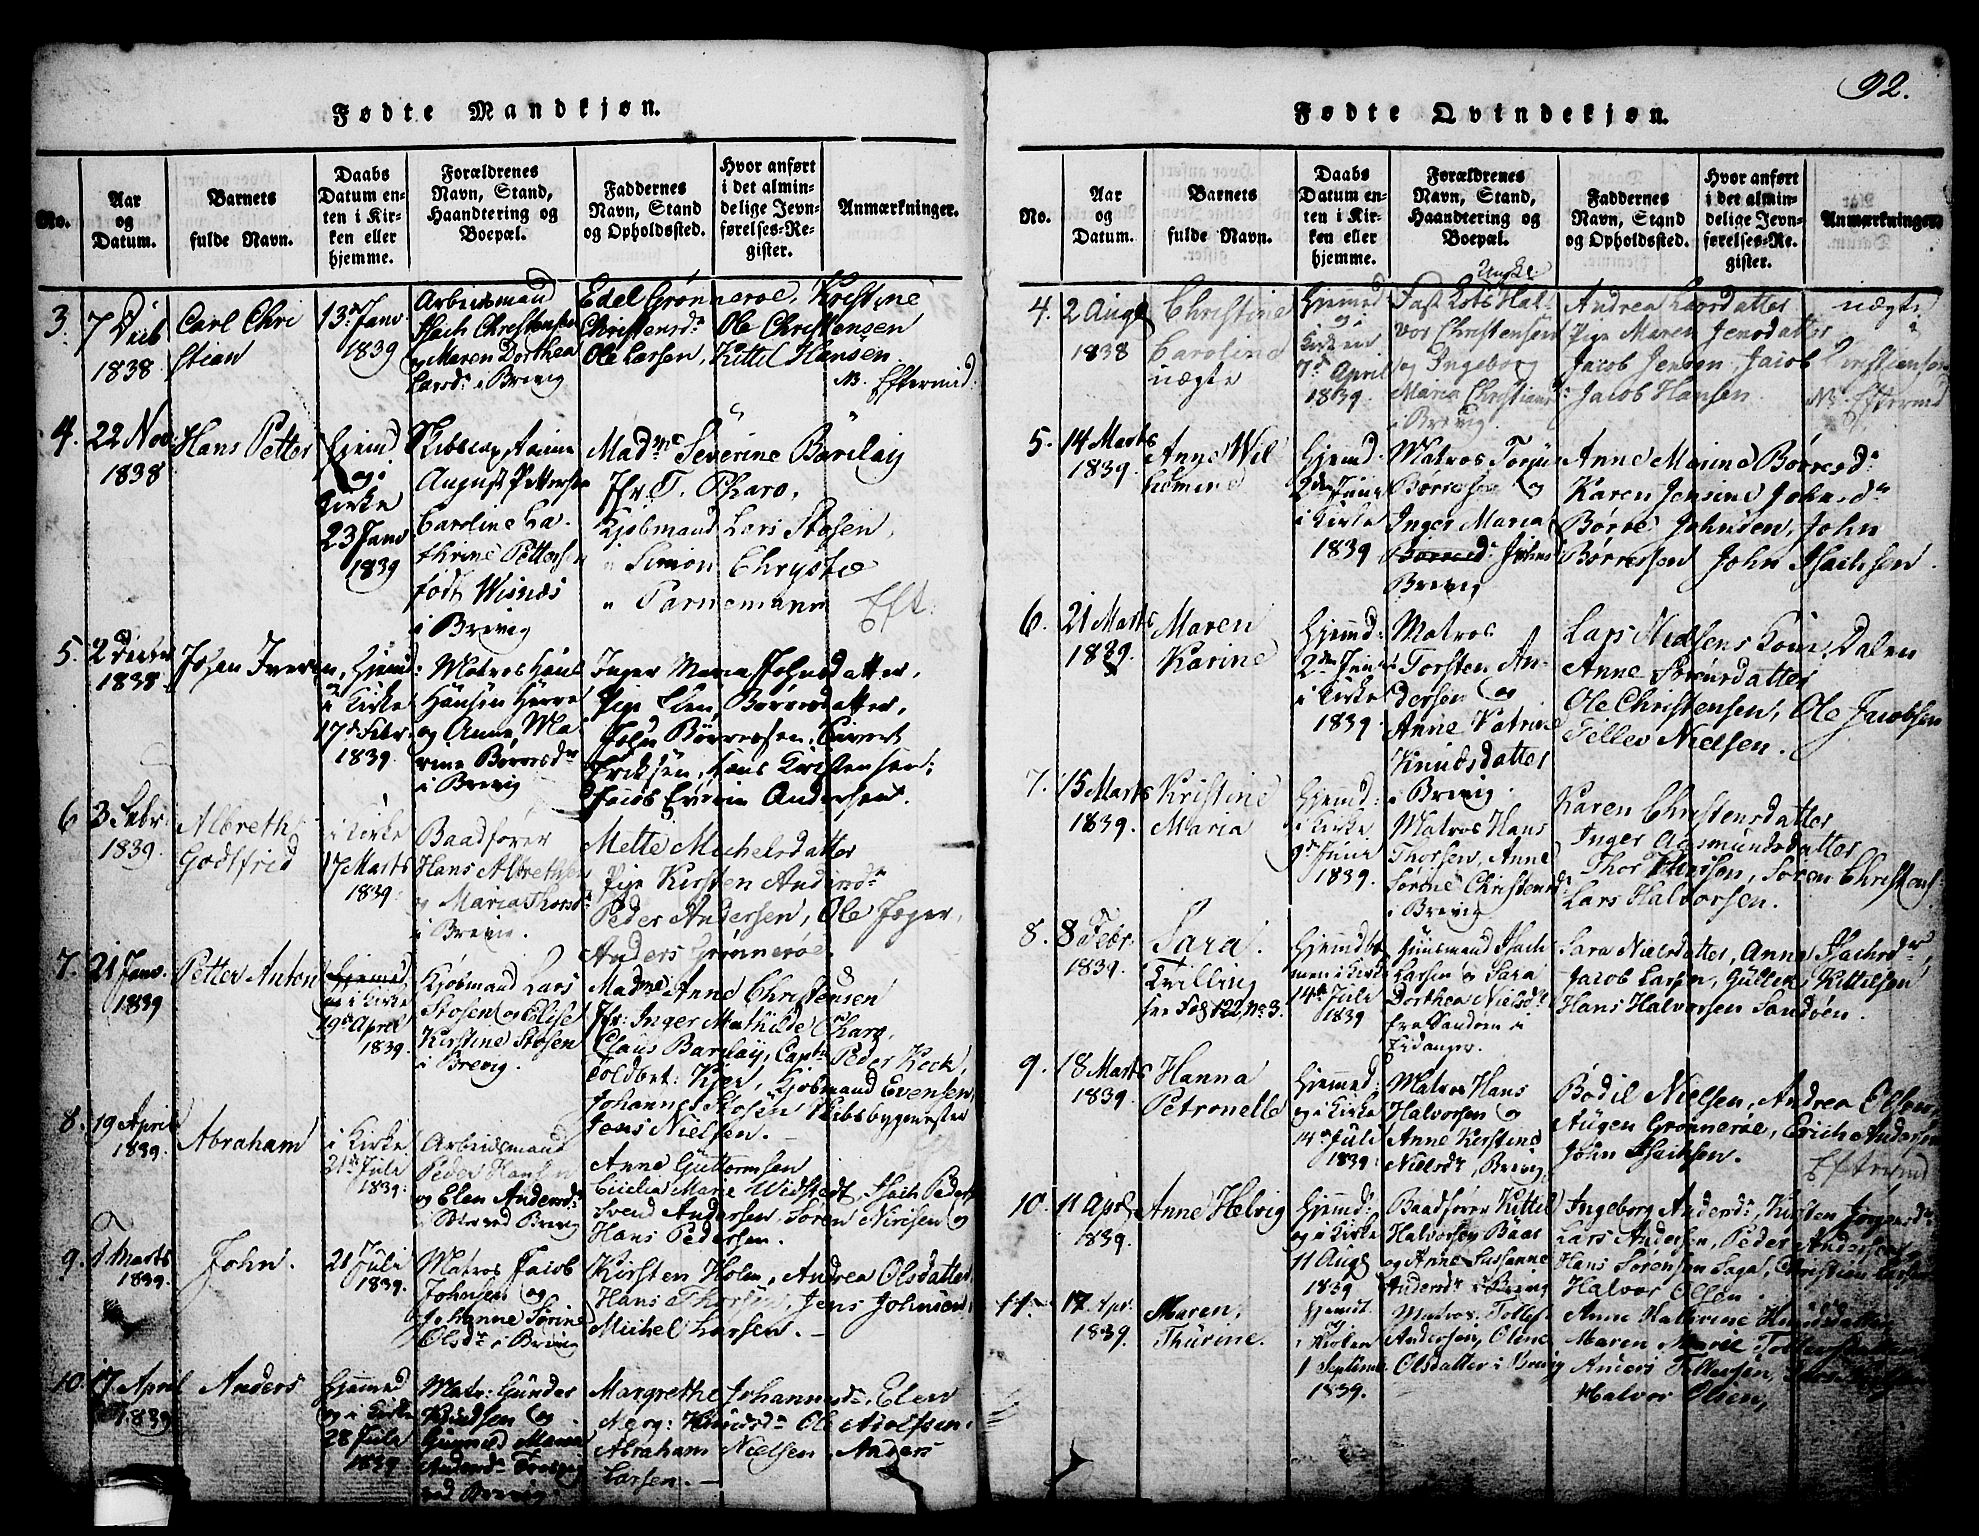 92.
Fødte Mandkjøn.
No.
Aar
og
Datum.
Barnets
fulde Navn.
Daabs
Datum en-
ten i Kir-
ken eller
hjemme.
Forældrenes
Navn, Stand,
Haandtering og
Boepæl.
Faddernes
Navn, Stand
og Opholdssted.
Hvor anført
i det almin-
delige Jevn-
førelses-Re-
gister.
Anmærkninger.
3.
7 Decb
1838
Carl Chri
stian
13de Janv
1839
Arbeidsmand
Isach Christensen
og Maren Dorthea
Larsdr i Brevig
Edel Grønnerøe, Kirstine
Christensdr Ole Christensen
Ole Larsen, Kittil Hansen.
4.
22 Nov
1838
Hans Petter
Hjemd
og i
Kirke
23 Janv
1839
August Pettersen
Caroline Ca-
thrine Pettersen
født Wisnæs
i Brevig
Madme Severine Barclay
Jfr. T. Pharo,
Kjøbmand Lars Stosen,
" Simon Chrystie
" Parnemann
Eft:
5.
2 Decbr
1838
Johan Iversen,
Hjemd:
i Kirke
17de Febr.
1839.
Matros Hans
Hansen
og Anne Ma
rine Børresdr
i Brevig
Inger Maria Johnsdatter,
Pige Elen Børresdatter,
John Børresen,
Eriksen, Hans Christensen:
Andersen.
6
3 Febr
1839.
Albreth
Godtfrid
i Kirke
17 Marts
1839.
Baadfører
Hans Albrethsen
og Maria Thorsdr
i Brevig.
Mette Michelsdatter
Pige Kirsten Andersdr
Peder Andersen, Ole Jæger,
Anders Grønnerøe
7.
21 Janv.
1839
Petter Anton
i Kirke
19de April
1839.
Kjøbmand Lars
Stosen og Elise
Kirstine Stosen
i Brevig.
Madme Anne Christensen
Jfr: Inger Mathilde Pharo,
Claus Barclay, Captn Peder Keck,
Toldbet: Kjær, Kjøbmand Evensen,
Johannes Stosen Skibsbygmester
Jens Nielsen.
8.
19 April
1839.
Abraham
i Kirke
21de Juli
1839.
Arbeidsmand
Peder Hansen
og Elen Andersdr
Brevig
Anne Guttormsen
Cecilia Marie Widstedt, Isach Peders
Svend Andersen, Søren Nielsen og
Hans Pedersen.
9.
Marts
1839.
John.
21 Juli
1839.
Matros Jacob
Johnsen og
Johanne Sørine
Olsdr i Brevig
Kirsten Holm, Andrea Olsdatter
Hans Thorsen, Jens Johnsen,
Michel Larsen.
10.
17 April
1839
Anders
Hjemmed
og i Kirke
28 Juli
1839.
Matr: Gunder
Knudsen og
Gunnild Maria
Andersdr
ved Brevig.
Margrethe Johannesdr, Elen
Marg: Knudsdr Ole Nielsen,
Abraham Nielsen, Anders
Larsen.
Fødte Qvindekjøn.
No.
Aar
og
Datum.
Barnets
fulde Navn.
Daabs
Datum en-
ten i Kir-
ken eller
hjemme.
Forældrenes
Navn, Stand,
Haandtering og
Boepæl.
Faddernes
Navn, Stand
og Opholdssted.
Hvor anført
i det almin-
delige Jevn-
førelses-Re-
gister.
Anmærkninger.
4.
2 Aug
1838
Christine
Caroline
uægte
Hjemmed
og i
Kirken
7de April
1839.
Ungkl.
Hal-
vor Christensen
og Ingeborg
Maria Christians
i Brevig.
Andrea Larsdatter
Pige Maren Jensdatter
Jacob Jensen, Jacob
Jacob Hansen.
uægte
5.
14 Marts
1839.
Anne Wil
helmine
Hjemd:
2den Juni
i Kirke
1839
Matros
Børresen og
Inger Maria
Johns
Brevig
Anne Marine Børresdr
Karen Jensine Johnsdr
Børre Johnsen, John
Børresen John Isachsen.
6.
21 Marts
1839.
Maren
Karine
Hjemd:
2den Juni
i Kirke
1839.
Matros
Torsten An-
dersen og
Anne Katrine
Knudsdatter
i Brevig.
Lars Nielsens Kone, Dalen
Anne Sørensdatter
Ole Christensen, Ole Jacobsen
Tellev Nielsen.
7.
15 Marts
1839.
Kristine
Maria
Hjemd:
i Kirke
9de Juni
1839.
Matros Hans
Thorsen, Anne
Sørine Christensdr
i Brevig
Karen Christensdatter
Inger Aasmundsdatter
Thor Hansen, Søren Christens
Lars Halvorsen.
8.
8 Febr.
1839.
Sara.
Tvilling
see Fol 122, No 3.
14de Juli
1839
Huusmand Isach
Larsen og Sara
Dorthea Nielsdr
fra Sandøen i
Eidanger.
Sara Nielsdatter, Anne Isachsdr,
Jacob Larsen, Gullek Kittilsen
Hans Halvorsen Sandøen.
9.
18 Marts
1839.
Hanna
Petronelle
Hjemmed:
og i Kirke
14de Juli
1839.
Matros Hans
Halvorsen og
Anne Kirstine
Nielsdr, Brevig
Bodil Nielsen, Andrea Olsen,
Augen Grønnerøe, Erich Andersen
John Isachsen.
10.
11 April
1839.
Anne Helvig
Hjemmd:
og i Kirke
11 Aug
1839
Baadfører Kittel
Halvorsen Baas
og Anne Susanne
Andersdr i Brevig
Ingeborg Andersdr, Kirsten Jørgensdr
Lars Andersen, Peder Andersen
Hans Sørensen Saga, Christian Larsen
Halvor Olsen.
11.
17 Apr.
1839.
Maren,
Thurine.
Hjemdt.
og
i Kirken
1 Septbr
1839.
Matros Tollef
Andersen, Oline
Olsdatter i Brevig
Anne Kathrine
Maren Marie Tollefsdatter
Anders Tollefsen,
Halvor Olsen,